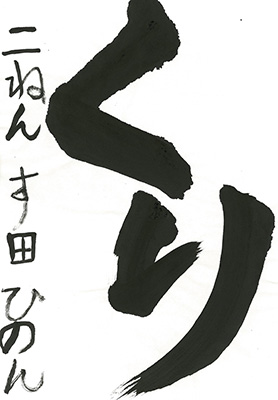 くり
二ねん す田 ひのん